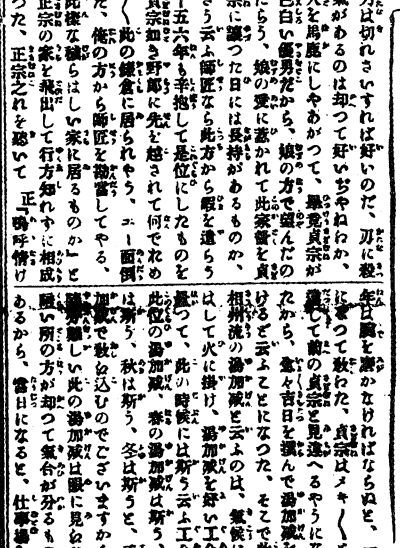 刀は切れさいすれば好いのだ、刃に殺
氣があるのは却つて好いぢやねわか、
人を馬鹿にしやあがつて、畢竟貞宗が
色白い優男だから、娘の方で望んだの
だらう、娘の愛に惹かれて此家督を貞
宗に讓つた日には長持があるものか、
さう云ふ師匠なら此方から暇を遣らう
十五六年も辛抱して是位にしたものを
貞宗如き野郎に先を越されて何でおめ
〱此の鎌倉に居られやう、エー面倒
だ、俺の方から師匠を勘當してやる、
此樣な穢らはしい家に居るものか」と
正宗の家を飛出して行方知れずに相成
つた、正宗之れを聽いて 正『嗚呼情け
年は腕を磨かなければならぬと、
にまつて敎わた、貞宗はメキ〱
達して前の貞宗と見違へるやうに
たから、愈々吉日を撰んで湯加減
けると云ふことになつた、そこで
相州流の湯加減と云ふのは、氣候
はして火に掛け、湯加減を好い工
量つて、此の時候には斯う云ふ工
此位の湯加減、春の湯加減は斯う、
は斯う、秋は斯う、冬は斯うと、
加減で敎ね込むのでございますか
難しい此の湯加減は眼に見
い所の方が却つて氣合が分るも
あるから、當日になると、仕事場